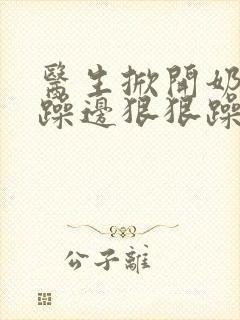 醫生掀開奶
躁邊狠狠躁
公子離